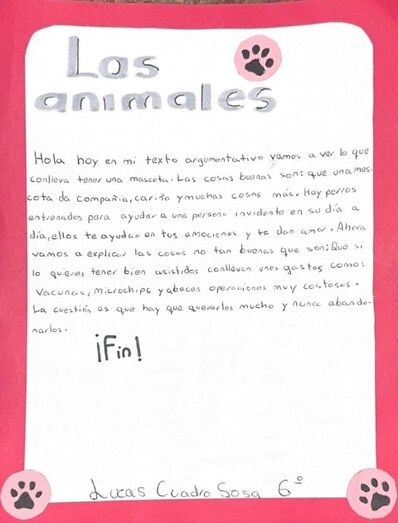 Los
animales
Hola hoy en mi texto argumentativo vamos a ver lo que
conlleva tener una mascota. Las cosas buenas son: que una mas-
cota da compañia, cariño y muchas cosas más. Hay perros
entrenados para ayudar a una persona invidente en su día a
día, ellos te ayudan en tus emociones y te dan amor. Ahora
vamos a explicar las cosas no tan buenas que son: Que si
lo quieres tener bien asistidos conllevan unos gastos como:
Vacunas, microchips y abeces operaciones muy costosas.
La cuestión es que hay que quererlos mucho y nunca abando-
narlos.
¡Fin!
Lucas Cuadro Sosa 6º